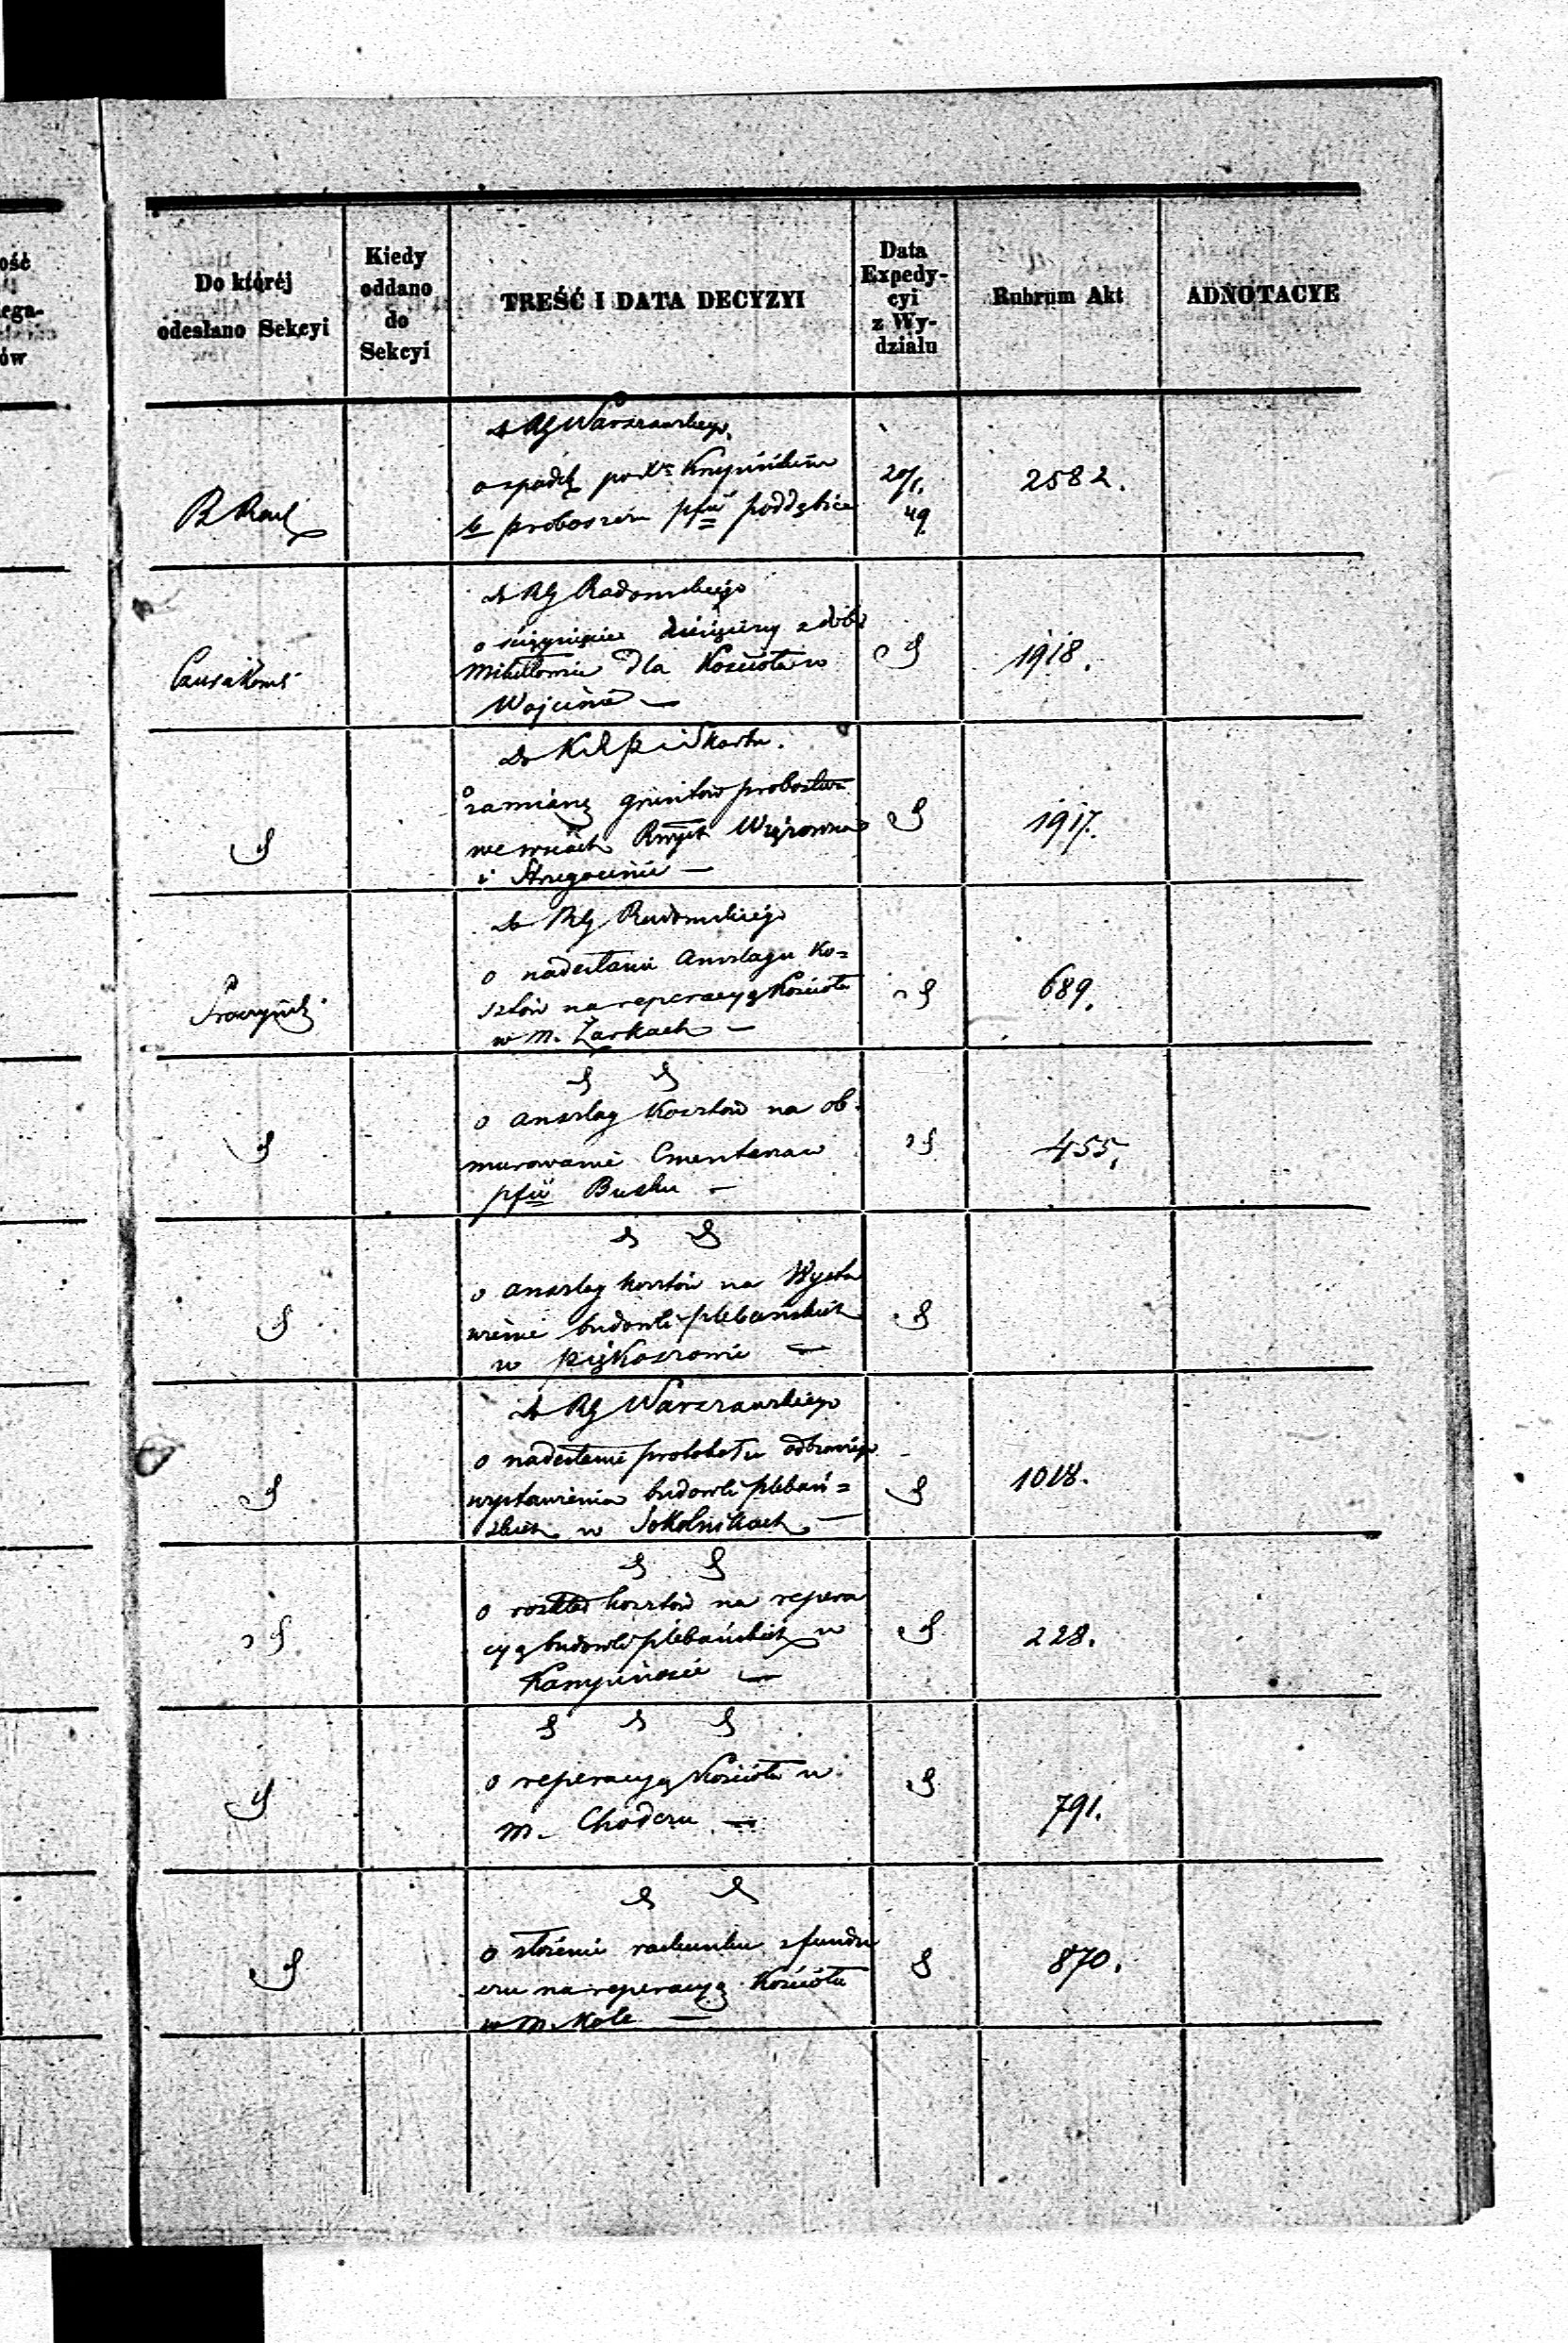 ość
ega-
ów
Do któréj
odesłano Sekcyi
Kiedy
oddano
do
Sekcyi
TREŚĆ I DATA DECYZYI
Data
Expedy-
cyi
z Wy-
działu
Rubrum Akt
ADNOTACYE
do RG Warszawskiego
o spadek po Krupińskim
b proboszczu pfii poddębice
20/1.
49.
2582.
do RG Radomskiego
o ściągnięcie dziesięciny z dóbr
dla Kościoła w
Wojcinie —
1918.
Do K
zamianę gruntów
we wsiach
i —
1917.
do RG Radomskiego
o nadesłanie anszlagu ko=
sztów na reperacyą Kościoła
w m. Żarkach —
689.
o anszlag kosztów na ob
murowanie Cmentarza w
pfii Busku —
455.
o anszlag kosztów na Wysta
wienie budowli plebańskich
w Piękoszowie —
do RG Warszawskiego
o nadesłanie protokołu odbiorczego
wystawienia budowli plebań=
skich w Sokolnikach —
1018.
o rozkład kosztów na repera
cyą budowli plebańskich w
Kampinosie —
228.
o reperacyą Kościoła w
m. Chodczu —
791.
o złożenie rachunku z fundu
szu na reperacyą Kościoła
w m. Kole —
870.